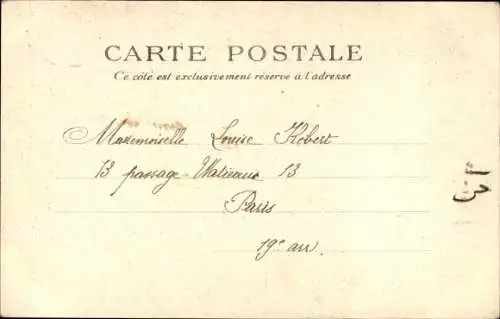 CARTE POSTALE
Ce côté est exclusivement réservé à l'adresse
Mademoiselle Louise Hébert
13 passage 13
Paris
19e arr